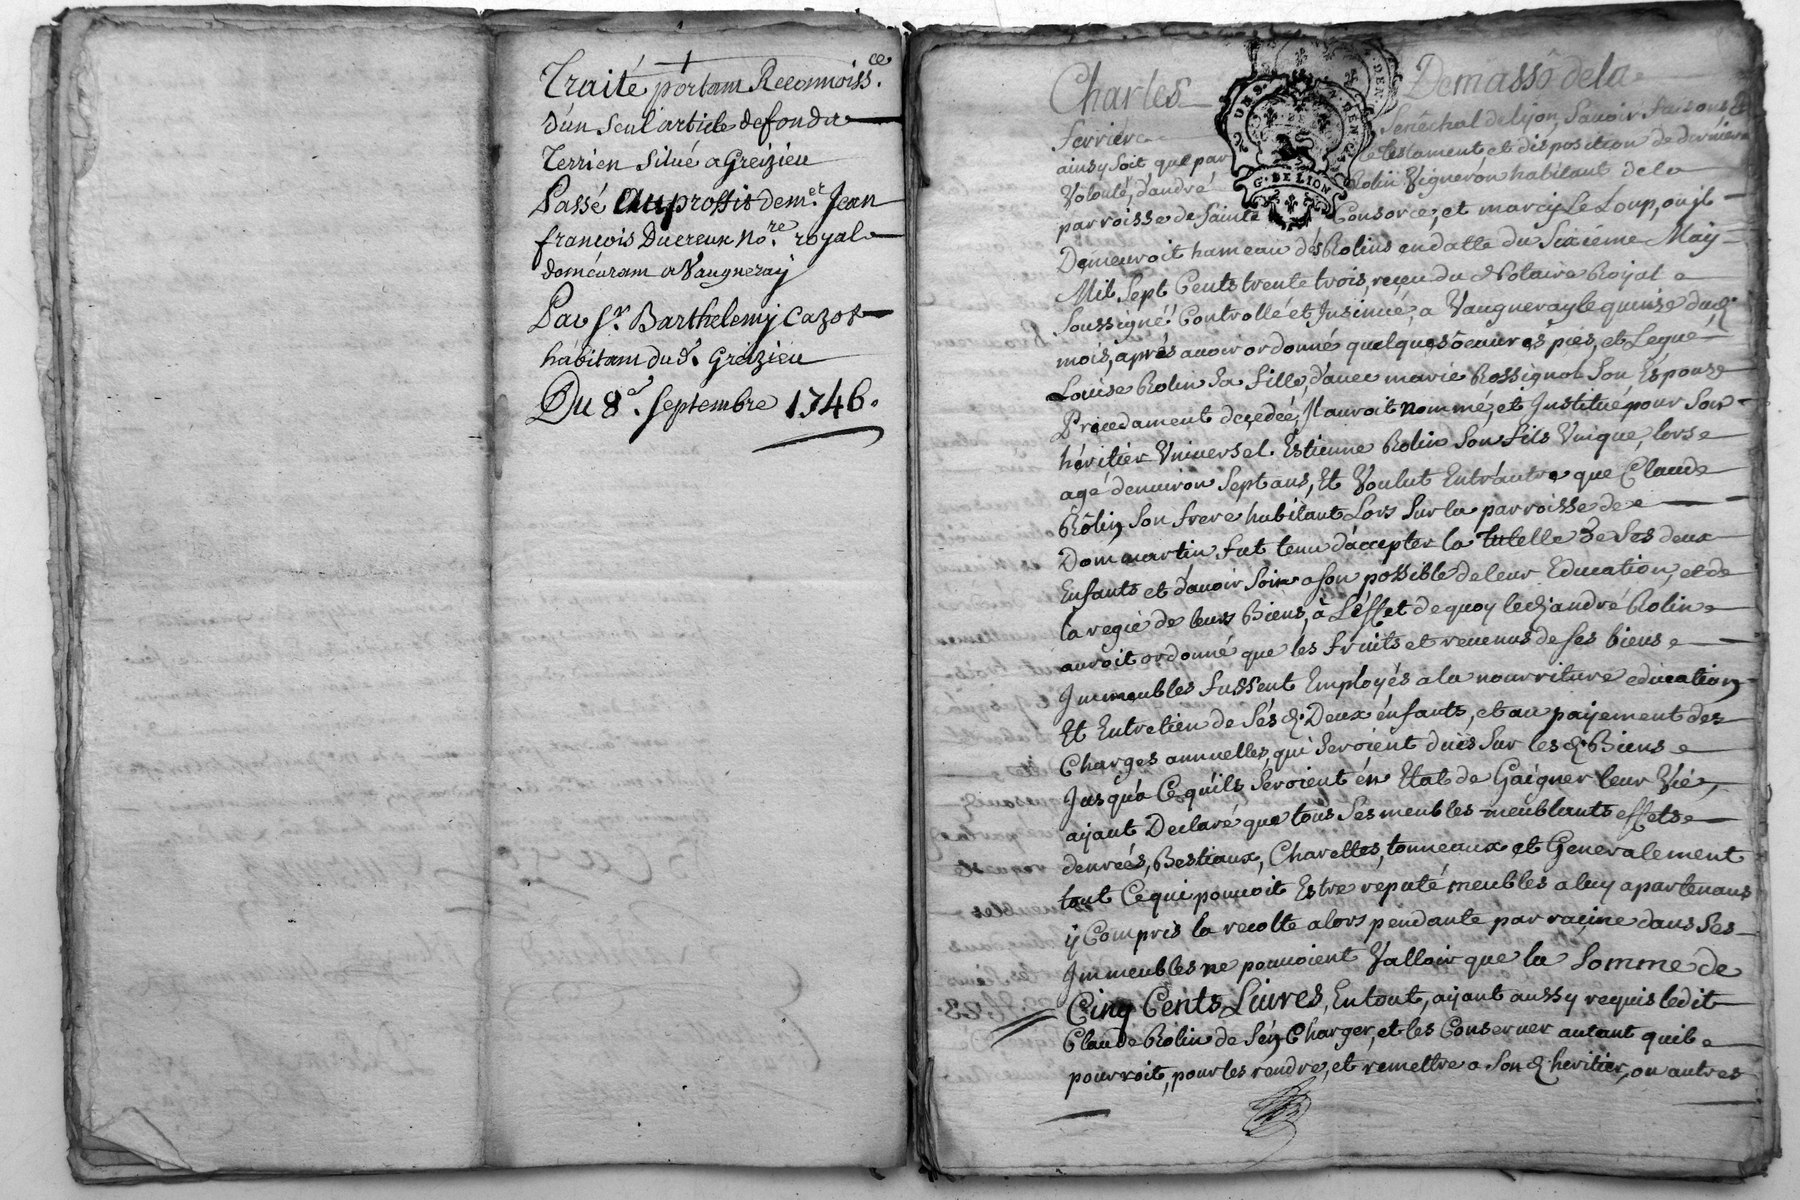 Traité portant Reconnoiss.ce
D'un Seul article de fondu
Terrien Situé a Greizieu
Passé Au proffit de m.e Jean
françois Ducreux No.re royal
demeurant a Vaugneray
Par s.r Barthelemy Cazot
habitant dud. Greizieu
Du 8.e Septembre 1746.
Charles Demasso de la
ferriere Senéchal de Lyon, Savoir faisons
ainsy soit, que par le testament, et disposition de derniere
Volouté, d'andré Rolin Vigneron habitant de la
parroisse de Sainte Consorce, et marcy Le Loup, ou il
Demeuroit hameau des Rolins en datte du Sixiéme May
Mil Sept Cents trente trois, reçeu du Notaire Royal
Soussigné! Controllé et Jnsinué, a Vaugneray le quinze dud.
mois, aprés avoir ordonné quelques oeuvres pies, et Legué
Louise Rolin Sa fille d'avec marie Rossignol Son Espouze
Precedament deçedeé, Jl auroit nommé, et Jnstitué pour Son
héritier Vniversel Estienne Rolin Son fils Vnique, lors
agé d'environ Sept ans, Et Voulut Entr'autre que Claude
Rolin Son frere habitant Lors Sur la parroisse de
Dommartin fut tenu d'accepter la tutelle de Ses deux
Enfants et d'avoir Soin a son possible de leur Education, et de
la regie de leurs Biens, à L'éffet de quoy led. andré Rolin
auroit ordonné que les fruits et revenus de ses biens
Jmmeubles fussent Employés a la nourriture education
Et Entretien de Sés d. Deux énfants, et au payement des
Charges annuelles, qui Seroient duës Sur les d. Biens
Jusqu'a Ce quils Seroient én Etat de Gaigner leur Vie,
ayant Declaré que tous Ses meubles meublants effets
denreés, Bestiaux, Charettes, tonneaux et Generalement
tout Ce qui pouvoit Estre reputé meubles a luy apartenans
y Compris la recolte alors pendante par racine dans Ses
Jmmeubles ne pouvoient Valloir que la Somme de
Cinq Cents Livres, En tout, ayant aussy requis ledit
Claude Rolin de S'én Charger, et les Conserver autant quil
pourroit, pour les rendre, et remettre a Son d. heritier, ou autres
G. DE LION